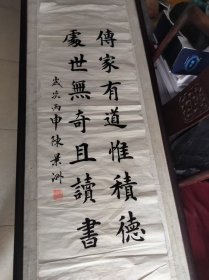 傳家有道惟積德
處世無奇且讀書
歲次丙申陳景渊